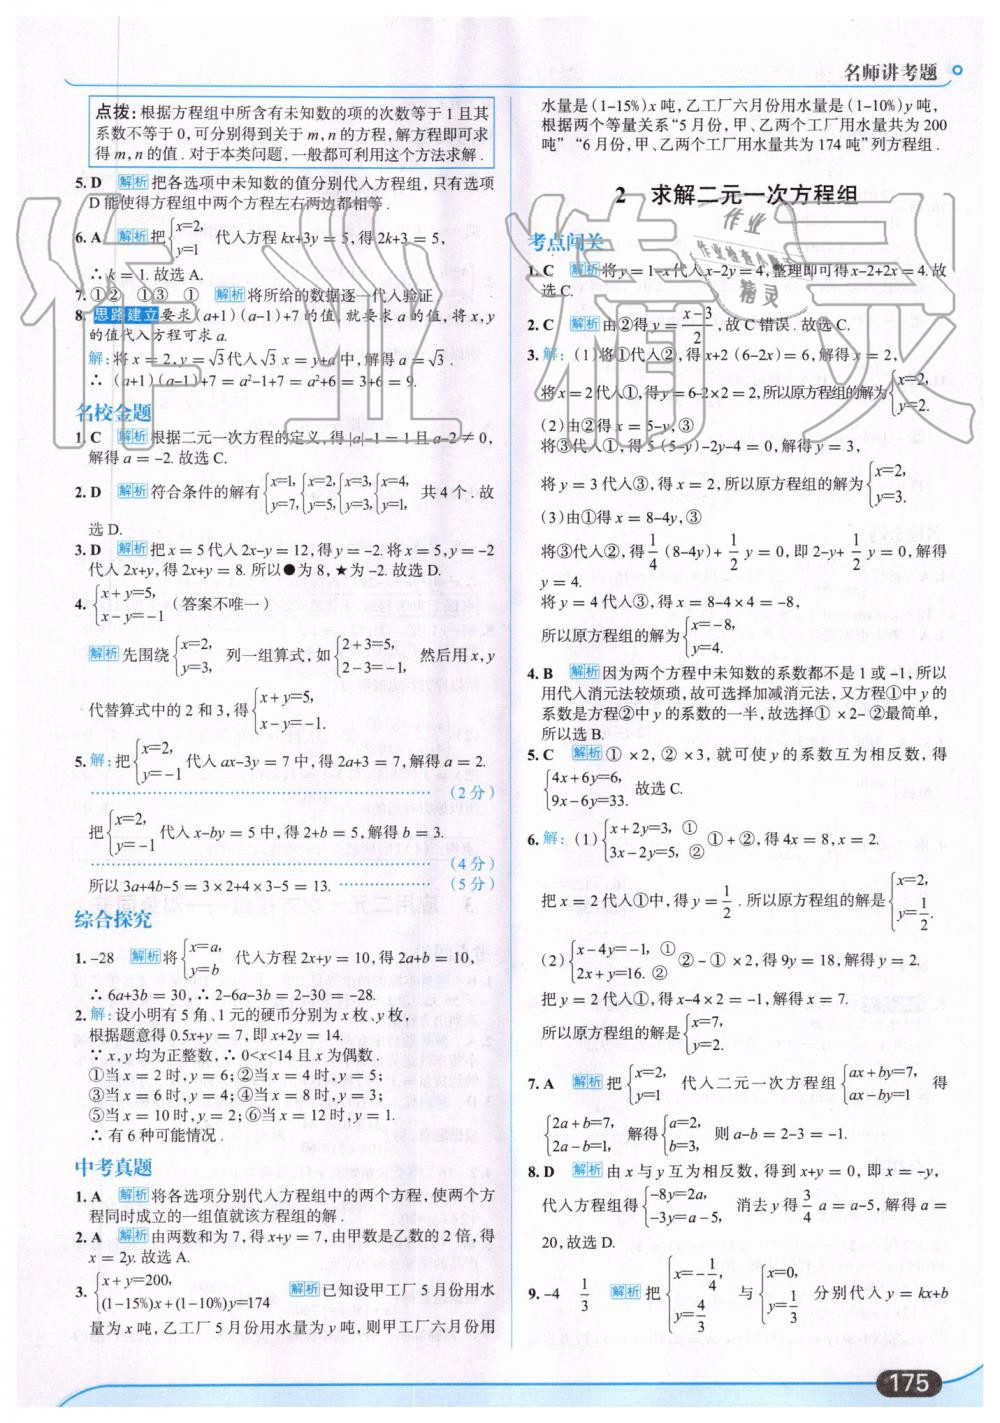 名师讲考题
点拨：根据方程组中所含有未知数的项的次数等于 1 且其
系数不等于 0，可分别得到关于 m，n 的方程，解方程即可求
得 m，n 的值．对于本类问题，一般都可利用这个方法求解．
5. D 解析 把各选项中未知数的值分别代入方程组，只有选项
D 能使得方程组中两个方程左右两边都相等．
6. A 解析 把{x=2, y=1 代入方程 kx+3y = 5，得 2k+3 = 5，
∴ k = 1. 故选 A.
7. ①② ①③ ① 解析 将所给的数据逐一代入验证
8. 思路建立 要求 (a+1) (a-1)+7 的值，就要求 a 的值，将 x，y
的值代入方程可求 a.
解：将 x = 2，y = √3 代入 √3 x = y+a 中，解得 a = √3 .
∴ (a+1) (a-1)+7 = a²-1+7 = a²+6 = 3+6 = 9.
名校金题
1. C 解析 根据二元一次方程的定义，得 |a|-1 = 1 且 a-2 ≠ 0，
解得 a = -2. 故选 C.
2. D 解析 符合条件的解有{x=1, y=7, {x=2, y=5, {x=3, y=3, {x=4, y=1, 共 4 个．故
选 D.
3. D 解析 把 x = 5 代入 2x-y = 12，得 y = -2. 将 x = 5，y = -2
代入 2x+y，得 2x+y = 8. 所以●为 8，★为 -2. 故选 D.
4. {x+y=5, x-y=-1 （答案不唯一）
解析 先围绕{x=2, y=3, 列一组算式，如{2+3=5, 2-3=-1, 然后用 x，y
代替算式中的 2 和 3，得{x+y=5, x-y=-1.
5. 解：把{x=2, y=-1 代入 ax-3y = 7 中，得 2a+3 = 7，解得 a = 2.
（2 分）
把{x=2, y=-1 代入 x-by = 5 中，得 2+b = 5，解得 b = 3.
（4 分）
所以 3a+4b-5 = 3×2+4×3-5 = 13. （5 分）
综合探究
1. -28 解析 将{x=a, y=b 代入方程 2x+y = 10，得 2a+b = 10，
∴ 6a+3b = 30，∴ 2-6a-3b = 2-30 = -28.
2. 解：设小明有 5 角、1 元的硬币分别为 x 枚、y 枚，
根据题意得 0.5x+y = 7，即 x+2y = 14.
∵ x，y 均为正整数，∴ 0<x<14 且 x 为偶数．
①当 x = 2 时，y = 6；②当 x = 4 时，y = 5；
③当 x = 6 时，y = 4；④当 x = 8 时，y = 3；
⑤当 x = 10 时，y = 2；⑥当 x = 12 时，y = 1.
∴ 有 6 种可能情况．
中考真题
1. A 解析 将各选项分别代入方程组中的两个方程，使两个方
程同时成立的一组值就该方程组的解．
2. A 解析 由两数和为 7，得 x+y = 7，由甲数是乙数的 2 倍，得
x = 2y. 故选 A.
3. {x+y=200, (1-15%)x+(1-10%)y=174 解析 已知设甲工厂 5 月份用水
量为 x 吨，乙工厂 5 月份用水量为 y 吨，则甲工厂六月份用
水量是 (1-15%) x 吨，乙工厂六月份用水量是 (1-10%) y 吨，
根据两个等量关系“5 月份，甲、乙两个工厂用水量共为 200
吨”“6 月份，甲、乙两个工厂用水量共为 174 吨”列方程组．
2 求解二元一次方程组
考点闯关
1. C 解析 将 y = 1-x 代入 x-2y = 4，整理即可得 x-2+2x = 4. 故
选 C.
2. C 解析 由②得 y = (x-3)/2，故 C 错误．故选 C.
3. 解：(1) 将①代入②，得 x+2 (6-2x) = 6，解得 x = 2，
将 x = 2 代入①，得 y = 6-2×2 = 2，所以原方程组的解为{x=2, y=2.
(2) 由②得 x = 5-y，③
将③代入①，得 5 (5-y)-2y-4 = 0，解得 y = 3，
将 y = 3 代入③，得 x = 2，所以原方程组的解为{x=2, y=3.
(3) 由①得 x = 8-4y，③
将③代入②，得 1/4 (8-4y)+ 1/2 y = 0，即 2-y+ 1/2 y = 0，解得
y = 4.
将 y = 4 代入③，得 x = 8-4×4 = -8，
所以原方程组的解为{x=-8, y=4.
4. B 解析 因为两个方程中未知数的系数都不是 1 或 -1，所以
用代入消元法较烦琐，故可选择加减消元法，又方程①中 y 的
系数是方程②中 y 的系数的一半，故选择①×2-②最简单，
所以选 B.
5. C 解析 ①×2，②×3，就可使 y 的系数互为相反数，得
{4x+6y=6, 9x-6y=33. 故选 C.
6. 解：(1){x+2y=3，① 3x-2y=5，② ①+②，得 4x = 8，x = 2.
把 x = 2 代入①中，得 y = 1/2 . 所以原方程组的解是{x=2, y=1/2.
(2){x-4y=-1，① 2x+y=16. ② ②-①×2，得 9y = 18，解得 y = 2.
把 y = 2 代入①，得 x-4×2 = -1，解得 x = 7.
所以原方程组的解是{x=7, y=2.
7. A 解析 把{x=2, y=1 代入二元一次方程组{ax+by=7, ax-by=1 得
{2a+b=7, 2a-b=1, 解得{a=2, b=3, 则 a-b = 2-3 = -1.
8. D 解析 由 x 与 y 互为相反数，得到 x+y = 0，即 x = -y，
代入方程组得{-8y=2a, -3y=a-5, 消去 y 得 3/4 a = a-5，解得 a =
20，故选 D.
9. -4 1/3 解析 把{x=-1/4, y=4/3 与{x=0, y=1/3 分别代入 y = kx+b
175